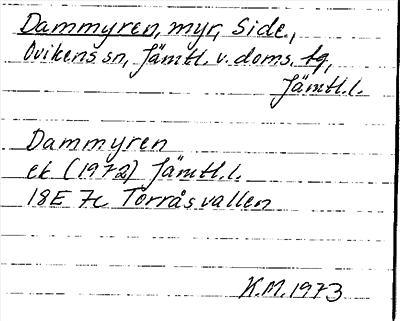 Dammyren, myr, Side.,
Ovikens sn, Jämtl. v. doms. tg,
Jämtl. l.
Dammyren
ek (1972) Jämtl. l.
18E 7c Torråsvallen
K.M. 1973